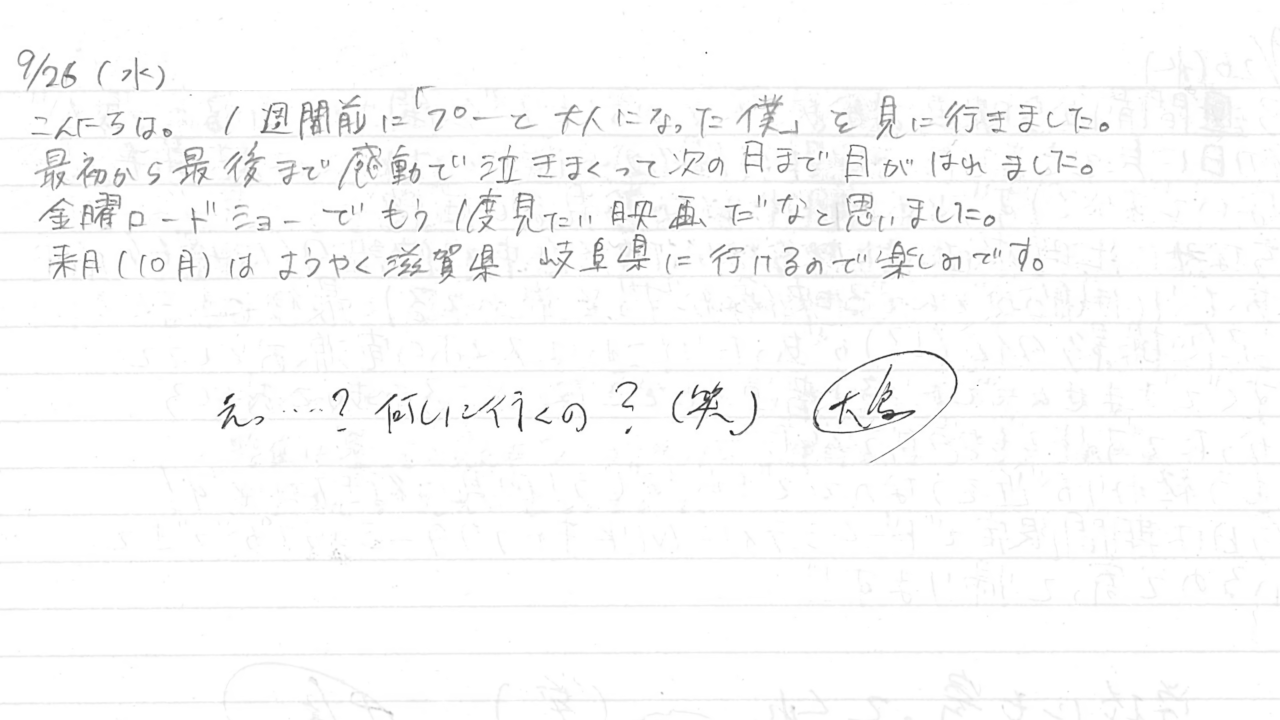 9/26(水)
こんにちは。 1週間前に「プーと大人になった僕」を見に行きました。
最初から最後まで感動で泣きまくって次の日まで目がはれました。
金曜ロードショーでもう1度見たい映画だなと思いました。
来月(10月)はようやく滋賀県 岐阜県に行けるので楽しみです。
えっ…? 何しに行くの?(笑) 大島